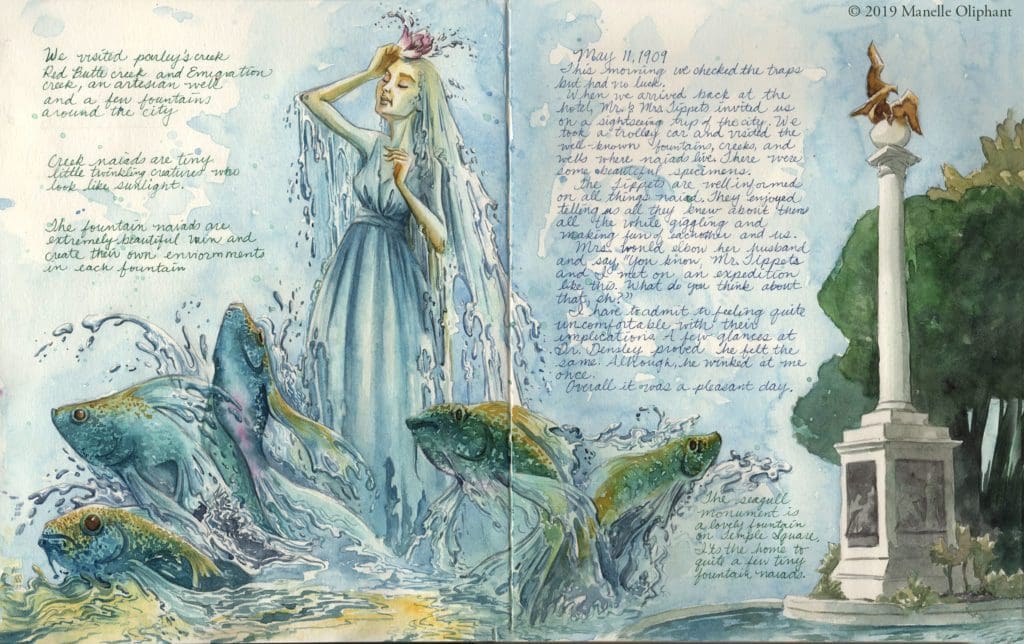 © 2019 Manelle Oliphant
We visited parley's creek
Red Butte creek and Emigration
Creek, an artesian well
and a few fountains
around the city
Creek naiads are tiny
little twinkling creatures who
look like sunlight.
The fountain naiads are
extremely beautiful vain and
create their own enviornments
in each fountain
May 11, 1909
This morning we checked the traps
but had no luck.
When we arrived back at the
hotel, Mr. & Mrs Tippets invited us
on a sightseeing trip of the city. We
took a trolley car and visited the
well-known fountains, creeks, and
wells where naiads live. There were
some beautiful specimens.
The Tippets are well informed
on all things naiad. They enjoyed
telling us all they knew about them
all the while giggling and
making fun of eachother and us.
Mrs. would elbow her husband
and say, "You know, Mr. Tippets
and I met on an expedition
like this. What do you think about
that, eh?"
I have to admit to feeling quite
uncomfortable with their
implications. A few glances at
Dr. Densley proved he felt the
same. Although, he winked at me
once.
Overall it was a pleasant day.
The seagull
monument is
a lovely fountain
on Temple Square.
It's the home to
quite a few tiny
fountain naiads.